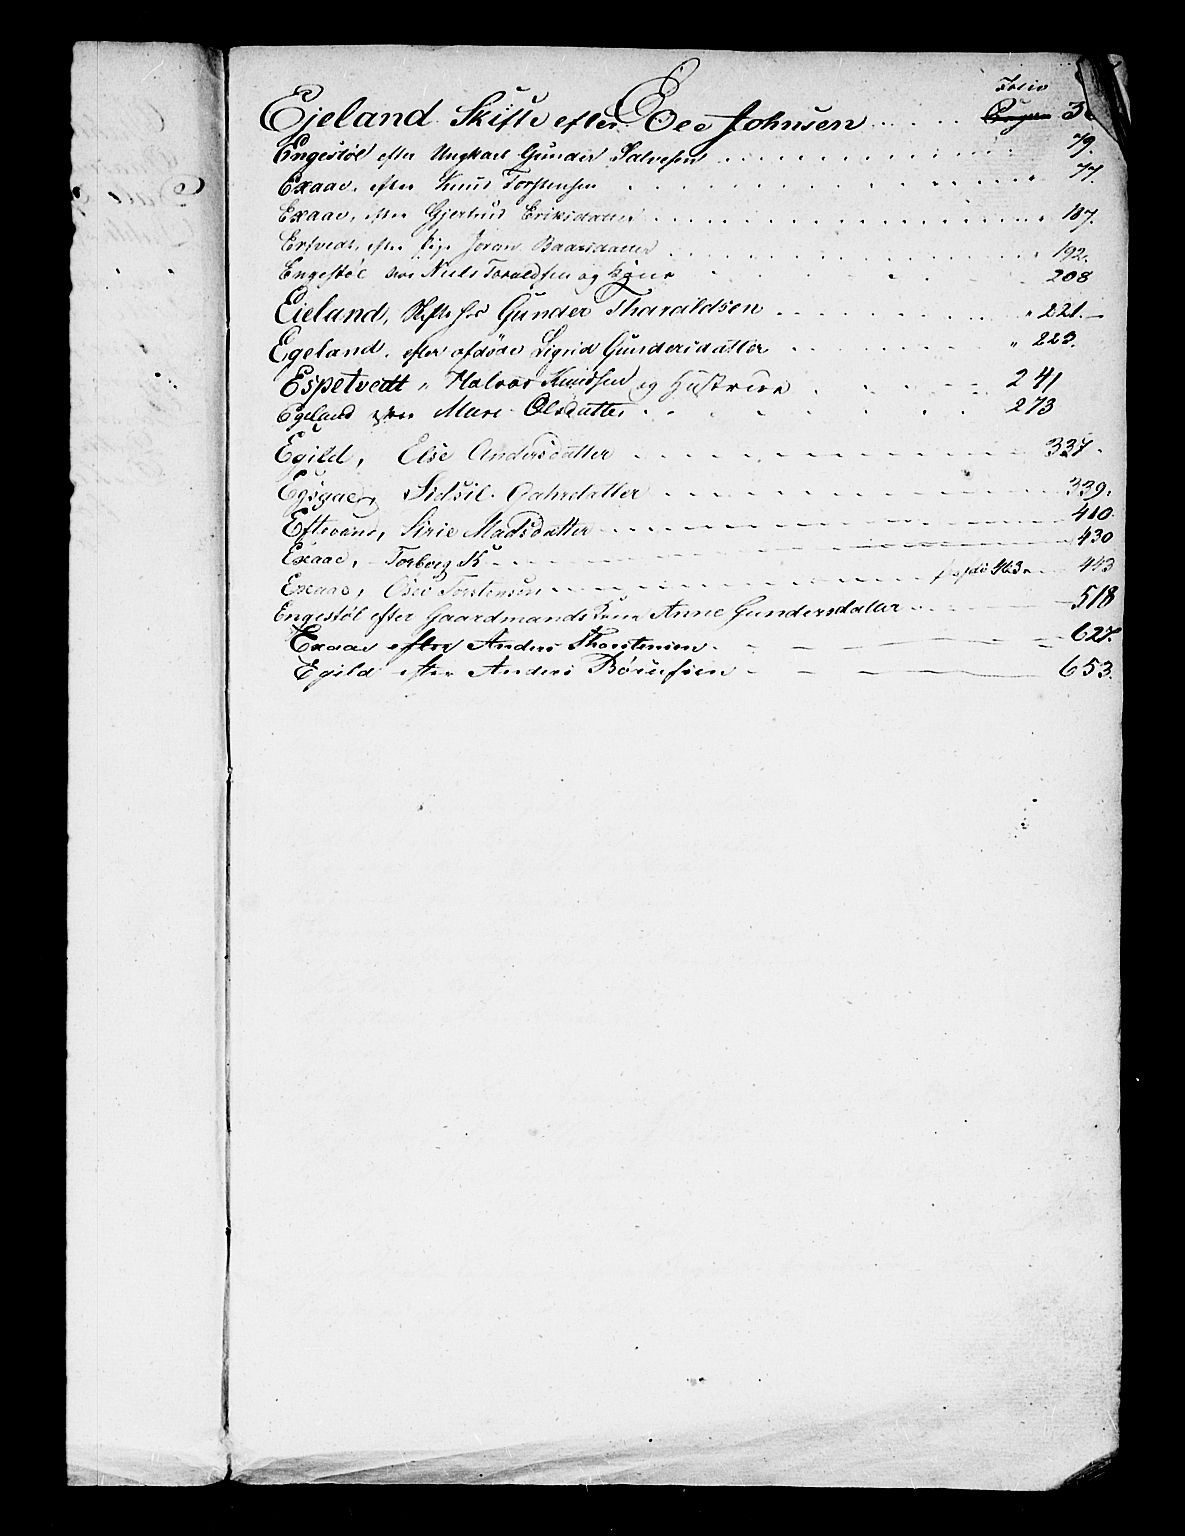 Folio
Ejeland Skifte efter Eee Johnsen . . . . Pagina 3
Engestøl efter Ungkarl Gunder Salvesen . . . . 79.
Exaae, efter Knud Torstensen . . . . 77.
Exaae, efter Gjertrud Eriksdatter . . . . 187.
efter Pige Joran Baarsdatter . . . . 192.
Engestøl hos Niels Toraldsen og Kone . . . . 208
Eieland, Skifte hos Gunder Tharaldsen . . . . " 221.
Egeland. efter afdøde Sigrid Gundersdatter . . . . " 223.
Espetvedt " Halvor Knudsen og Hustrue . . . . 241
Egeland Mari Olsdatter . . . . 273
Egild, Else Andersdatter . . . . 337.
Sidsil . . . . 339.
Eftevand, Sirie Madsdatter . . . . 410.
Exaae, Torborg K . . . . 430
Exaae, Torstensen . . . . 463. 443
Engestøl efter Gaardmands Anne Gundersdatter . . . . 518
Exaae efter Anders Thorstensen . . . . 627.
Egild efter Anders . . . . 653.